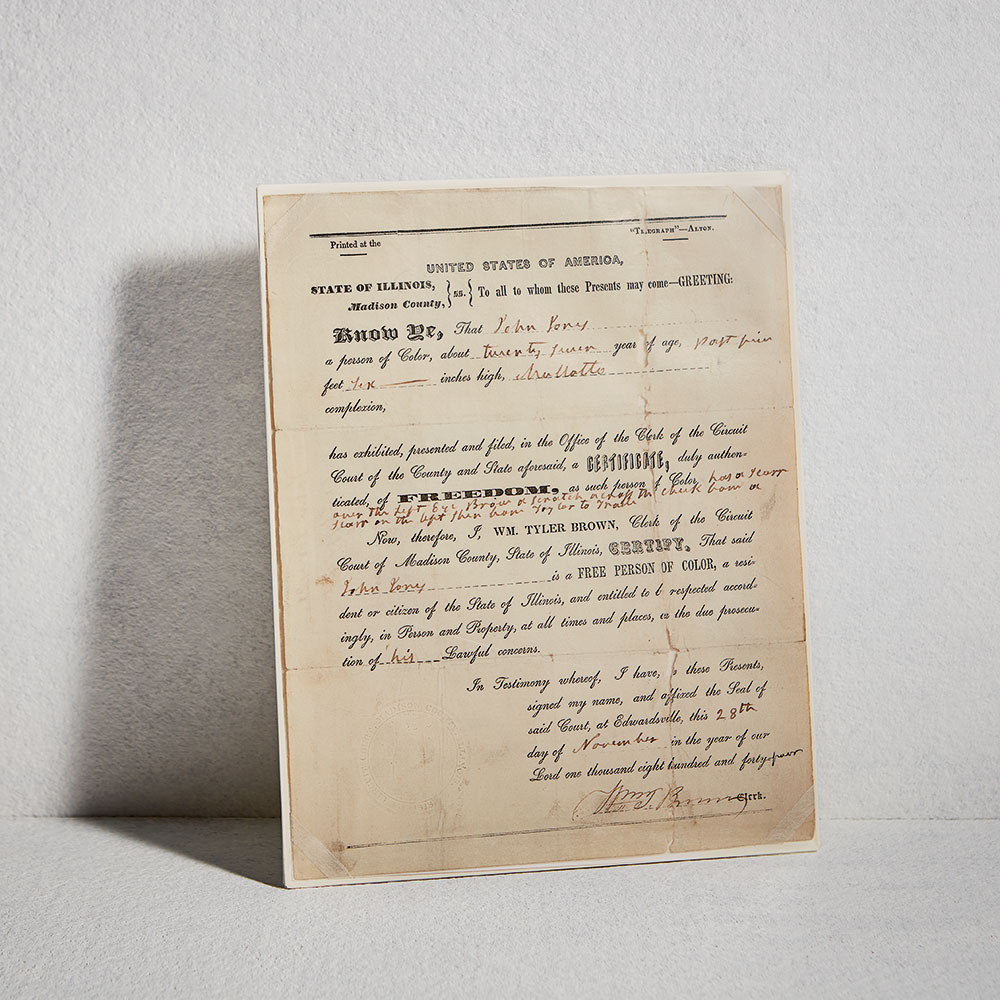 Printed at the "TELEGRAPH"—ALTON.
UNITED STATES OF AMERICA,
STATE OF ILLINOIS, } ss. { To all to whom these Presents may come—GREETING:
Madison County,
Know Ye, That John Jones
a person of Color, about twenty seven year of age,
feet six inches high, Mullatto
complexion,
has exhibited, presented and filed, in the Office of the Clerk of the Circuit
Court of the County and State aforesaid, a CERTIFICATE, duly authen-
ticated, of FREEDOM, as such person of Color, has a Scarr
over the Left Eye Brow a Scratch across the cheek bone a
Scarr on the left Shin bone
Now, therefore, I, WM. TYLER BROWN, Clerk of the Circuit
Court of Madison County, State of Illinois, CERTIFY, That said
John Jones is a FREE PERSON OF COLOR, a resi-
dent or citizen of the State of Illinois, and entitled to b respected accord-
ingly, in Person and Property, at all times and places, in the due prosecu-
tion of his Lawful concerns.
In Testimony whereof, I have, to these Presents,
signed my name, and affixed the Seal of
said Court, at Edwardsville, this 28th
day of November in the year of our
Lord one thousand eight hundred and forty-four
Wm T. Brown Clerk.